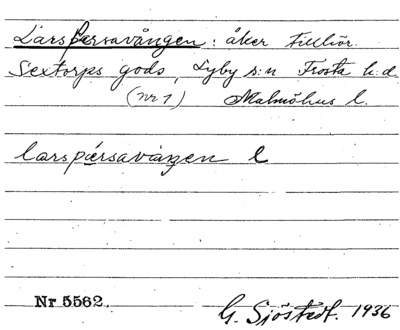 Lars Persavången: åker tillhör.
Sextorps gods, Lyby s:n Frosta h:d
(nr 1) Malmöhus l.
larspærsaváŋen l
Nr 5562.
G. Sjöstedt. 1936